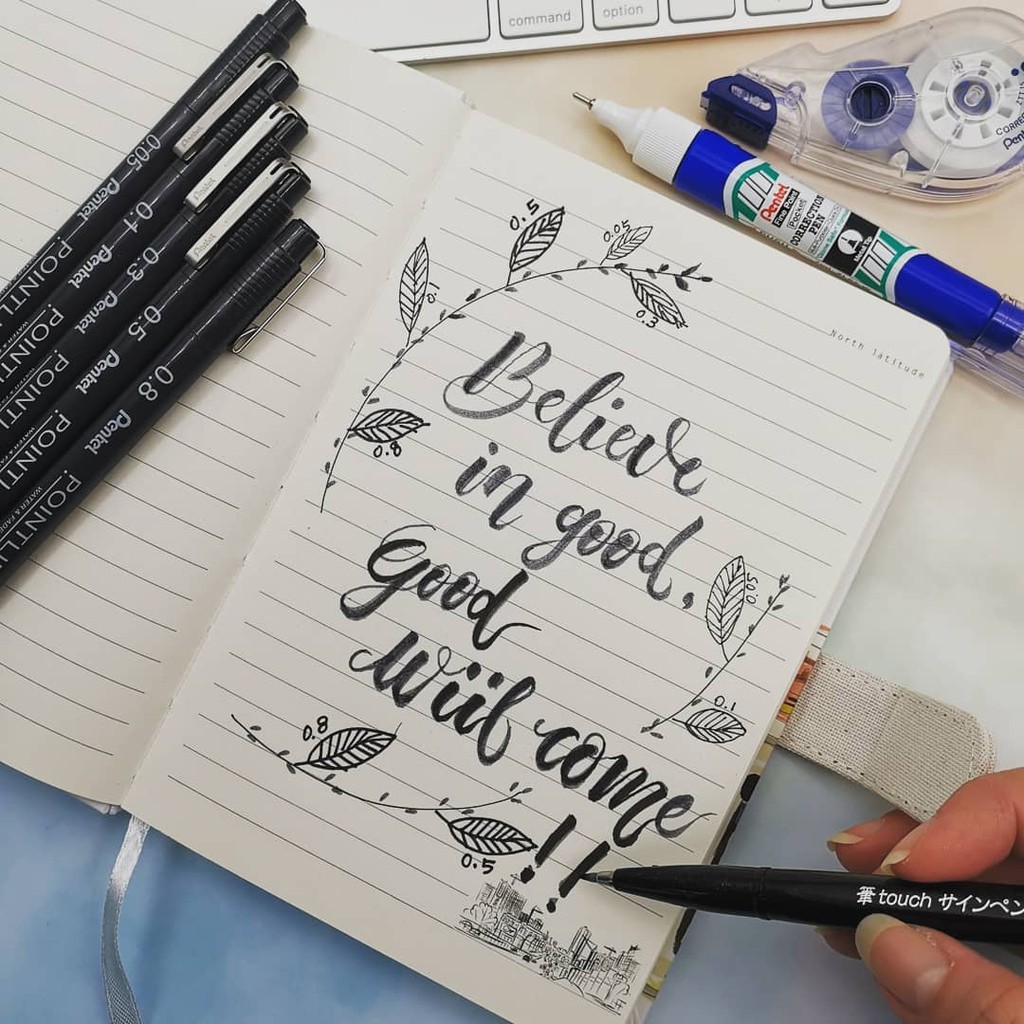 command
option
0.05 Pentel POINTL
0.1 Pentel POINTL
0.3 Pentel POINTL
0.5 Pentel POINTL
0.8 Pentel POINTL
WATER & FADE
Pentel
Pentel
Pentel
100
Pentel
Fine Point
Pocket
CORRECTION
PEN
100
CORRE
Pent
North latitude
0.5
0.05
0.1
0.3
0.8
Believe
in good,
Good
Wiill come
!!
0.05
0.1
0.8
0.5
筆touch サインペン